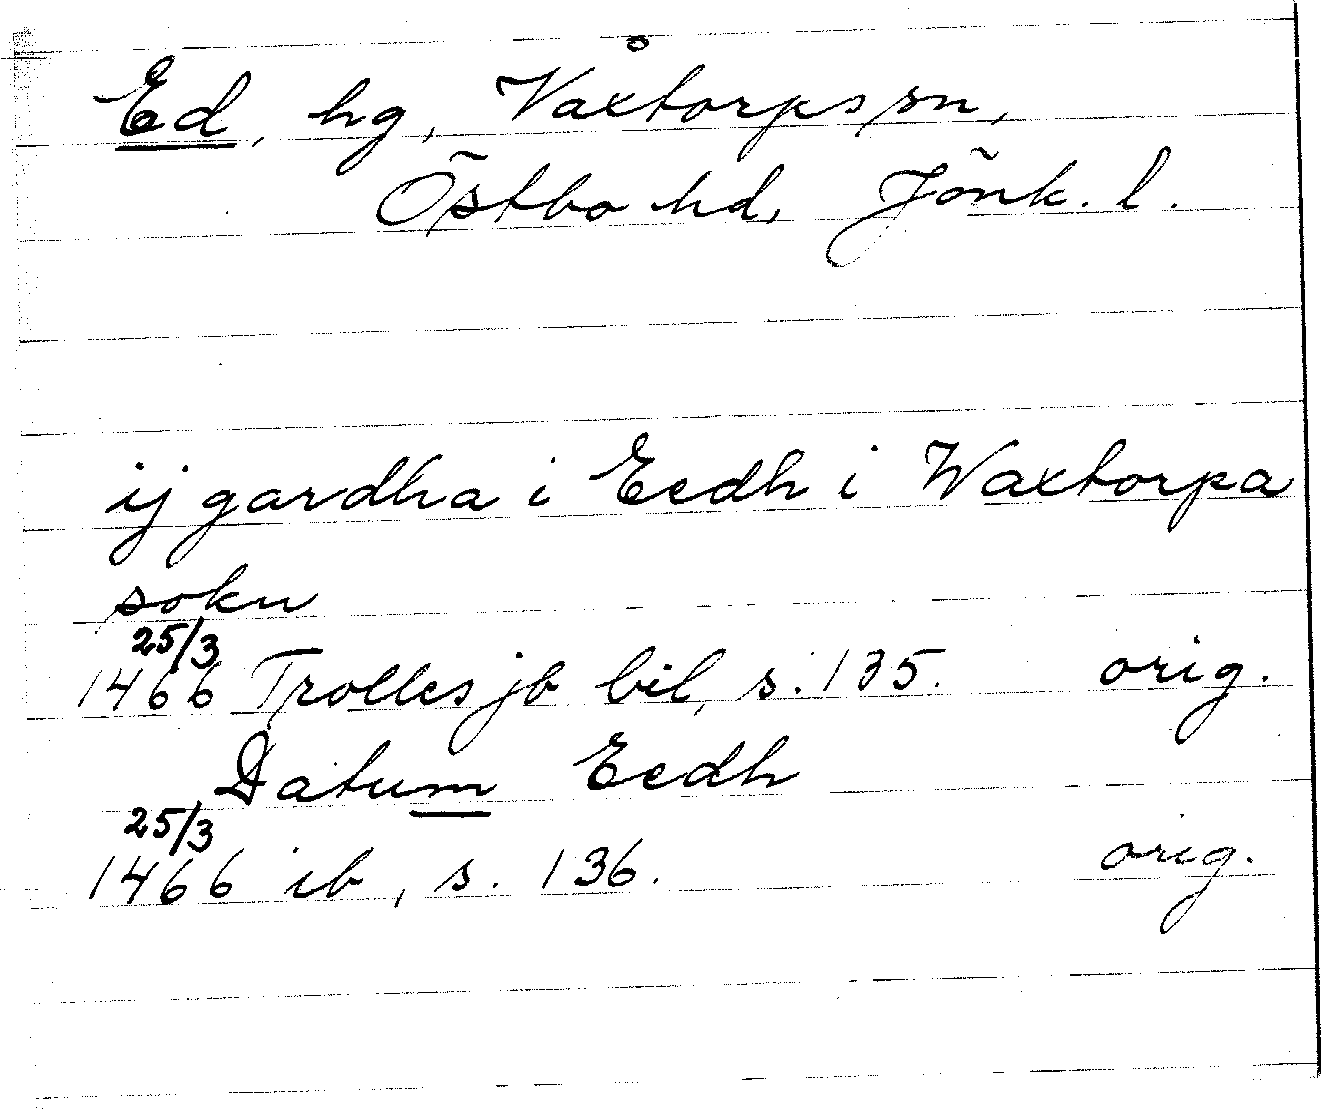 Ed, hg, Vaxtorps sn,
Östbo hd, Jönk. l.
ij gardha i Eedh i Waxtorpa
sokn
25/3
1466 Trolles jb bil, s. 135. orig.
Datum Eedh
25/3
1466 ib, s. 136. orig.